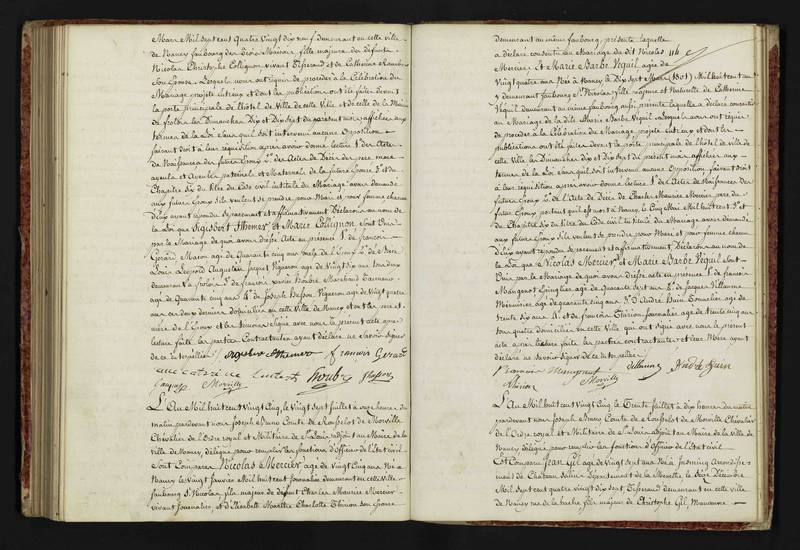 Mars Mil Sept cent Quatre Vingt dix neuf demeurant en cette ville
de Nancy faubourg des Trois Maisons, fille majeure des défunts
Nicolas Christophe Collignon vivant Tisserand et de Catherine
Son Epouse. Lesquels nous ont requis de procéder à la Célébration du
Mariage projeté entr'eux et dont les publications ont été faites devant
la porte principale de l'hôtel de Ville de cette Ville et de celle de la Mairie
de les Dimanches Dix et Dix Sept du présent mois affichées aux
termes de la Loi sans qu'il soit intervenu aucune Opposition
faisant droit à leur réquisition après avoir donné lecture 1° des Actes
de Naissances des futurs Epoux 2° des Actes de Décès des père, mère
ayeuls et Ayeules paternels et Maternels de la future Epouse 3° et du
Chapitre six du titre du Code civil intitulé du Mariage avons demandé
aux futurs Epoux s'ils veulent se prendre pour Mari et pour femme chacun
d'eux ayant répondu séparément et affirmativement Déclarons au nom de
la Loi que Sigisbert Thomas et Marie Collignon Sont Unis
par le Mariage de quoi avons dressé Acte en présence 1° de françois
Gérard Maçon agé de Quarante cinq ans
Louis Léopold Augustin Jacquet Vigneron agé de Vingt six ans tous deux
demeurant à 3° de françois Xavier Houbre Marchand
agé de Quarante Cinq ans 4° de Joseph Vigneron agé de Vingt quatre
ans ces deux derniers domiciliés en cette Ville de Nancy et ont les père et
mère de l'Epoux et les témoins signé avec nous le présent acte après
lecture faite les parties Contractantes ayant déclaré ne Savoir signer
de ce interpellées /.
françois Gerard
Houbre
Jacquet Morville
L'An Mil huit cent Vingt Cinq, le Vingt Sept Juillet à onze heures du
matin pardevant nous Joseph Bruno Comte de Rousselot de Morville
Chevalier de l'Ordre royal et Militaire de St Louis adjoint au Maire de la
Ville de Nancy délégué pour remplir les fonctions d'Officier de l'Etat civil.
Sont Comparus Nicolas Mercier agé de Vingt Cinq ans Né à
Nancy le Vingt Janvier Mil huit cent Journalier demeurant en cette Ville
faubourg St Nicolas, fils majeur de défunt Charles Maurice Mercier
vivant Journalier, et d'Elisabeth Charlotte Thirion son Epouse
demeurant au même faubourg, présente laquelle
a déclaré consentir au Mariage du dit Nicolas 116
Mercier, Et Marie Barbe Vequel agée de
Vingt quatre ans Née à Nancy le Dix Sept Mars (1801) Mil huit cent un
demeurant faubourg St Nicolas, fille Majeure et Naturelle de Catherine
Vequel demeurant au même faubourg aussi présente laquelle a déclaré consentir
au Mariage de la dite Marie Barbe Vequel. Lesquels nous ont requis
de procéder à la Célébration du Mariage projeté entr'eux et dont les
publications ont été faites devant la porte principale de l'hôtel de ville de
cette Ville les Dimanches Dix et Dix Sept du présent mois affichées aux
termes de la Loi sans qu'il soit intervenu aucune Opposition faisant droit
à leur réquisition après avoir donné lecture 1° des Actes de Naissances des
futurs Epoux 2° de l'Acte de Décès de Charles Maurice Mercier père du
futur Epoux portant qu'il est mort à Nancy, le Cinq Mai Mil huit cent 3° et
du Chapitre six du titre du Code civil intitulé du Mariage avons demandé
aux futurs Epoux s'ils veulent se prendre pour Mari et pour femme chacun
d'eux ayant répondu séparément et affirmativement, Déclarons au nom de
la Loi que Nicolas Mercier et Marie Barbe Vequel Sont
Unis par le Mariage de quoi avons dressé acte en présence 1° de françois
Mangenot Epinglier agé de Quarante sept ans 2° de Jacques Villaume
Menuisier agé de quarante cinq ans 3° D'André Tonnelier agé de
trente six ans 4° et de françois Thirion Journalier agé de trente cinq ans
tous quatre domiciliés en cette Ville qui ont signé avec nous le présent
acte après lecture faite les parties contractantes et leurs Mères ayant
déclaré ne savoir signer de ce interpellées /.
francois Mangenot Villaume André
thirion Morville
L'An Mil huit cent Vingt Cinq, le Trente Juillet à dix heures du matin
pardevant nous Joseph Bruno Comte de Rousselot de Morville Chevalier
de l'Ordre royal et Militaire de St Louis adjoint au Maire de la ville de
Nancy délégué pour remplir les fonctions d'Officier de l'Etat civil
Est Comparu Jean Gil agé de Vingt sept ans Né à Insming Arrondisse-
ment de Chateau Salins Département de la Meurthe, le Seize Décembre
Mil Sept cent quatre vingt dix sept, Tisserand demeurant en cette ville
de Nancy rue de la hache, fils majeur de Christophe Gil, Manœuvre